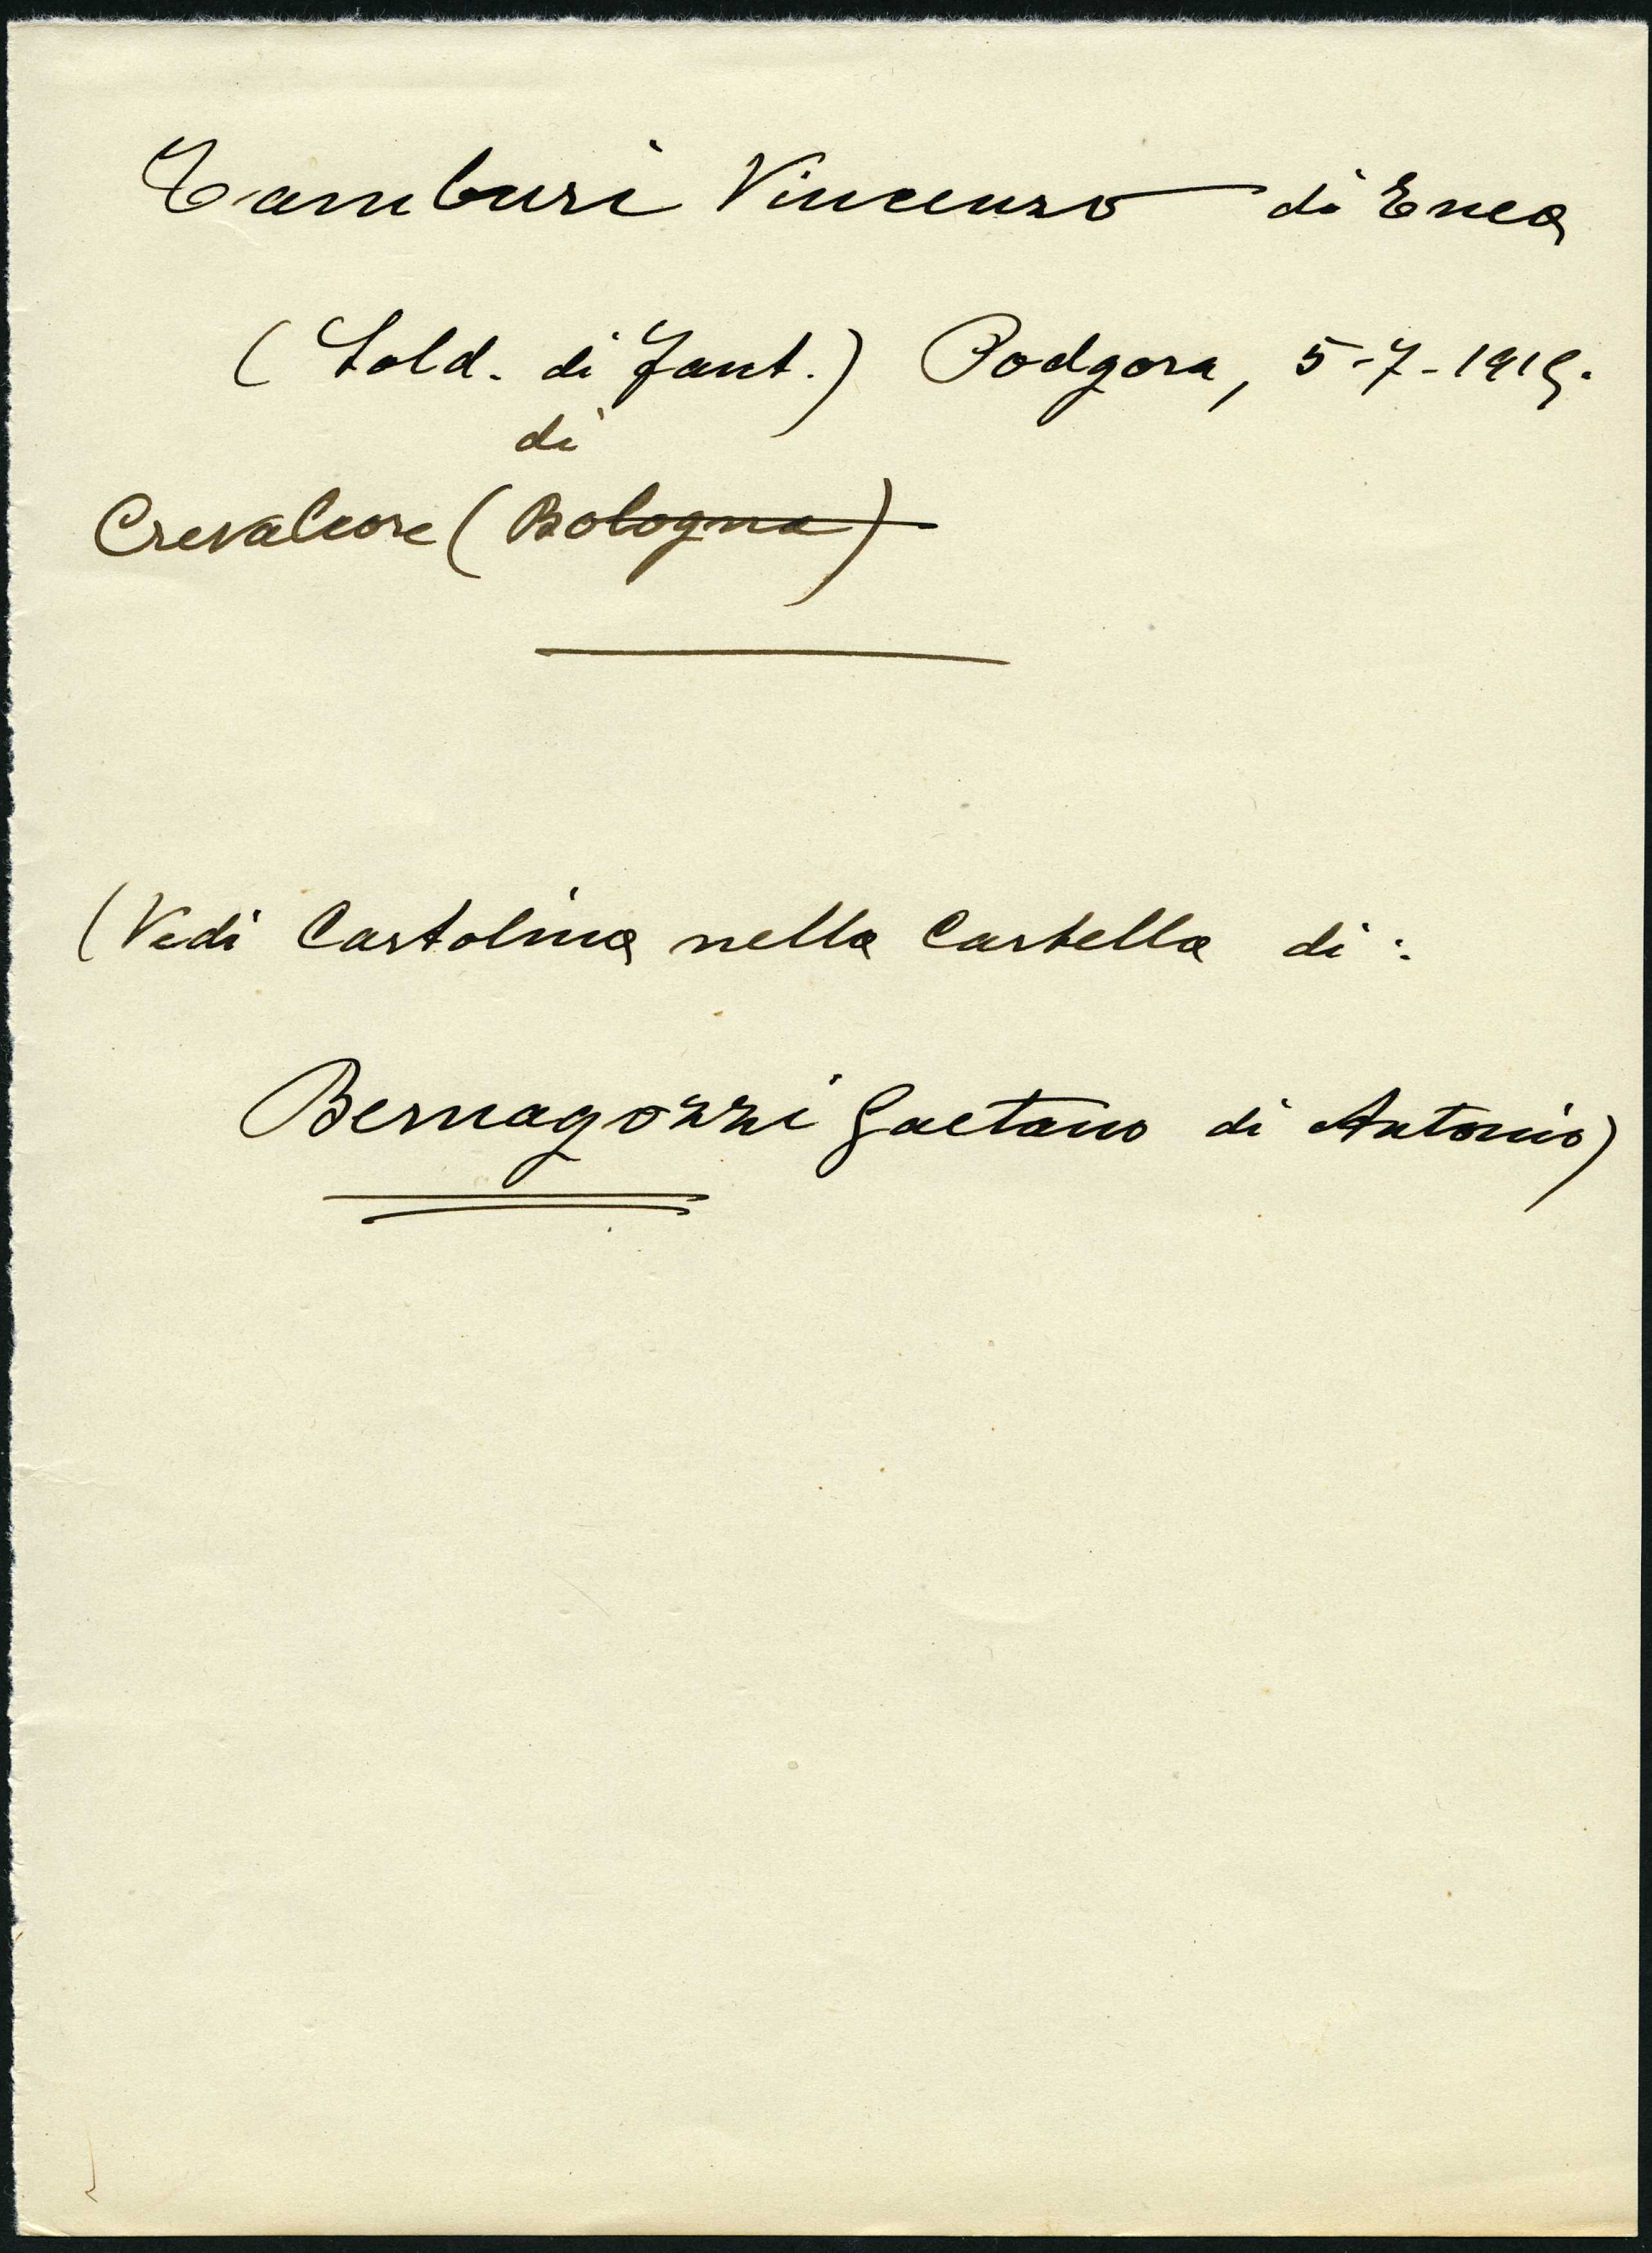 Tamburi Vincenzo di Enea
(Sold. di Fant.) Podgora, 5-7-1915.
di
Crevalcore (Bologna)
(Vedi Cartolina nella Cartella di:
Bernagozzi Gaetano di Antonio)